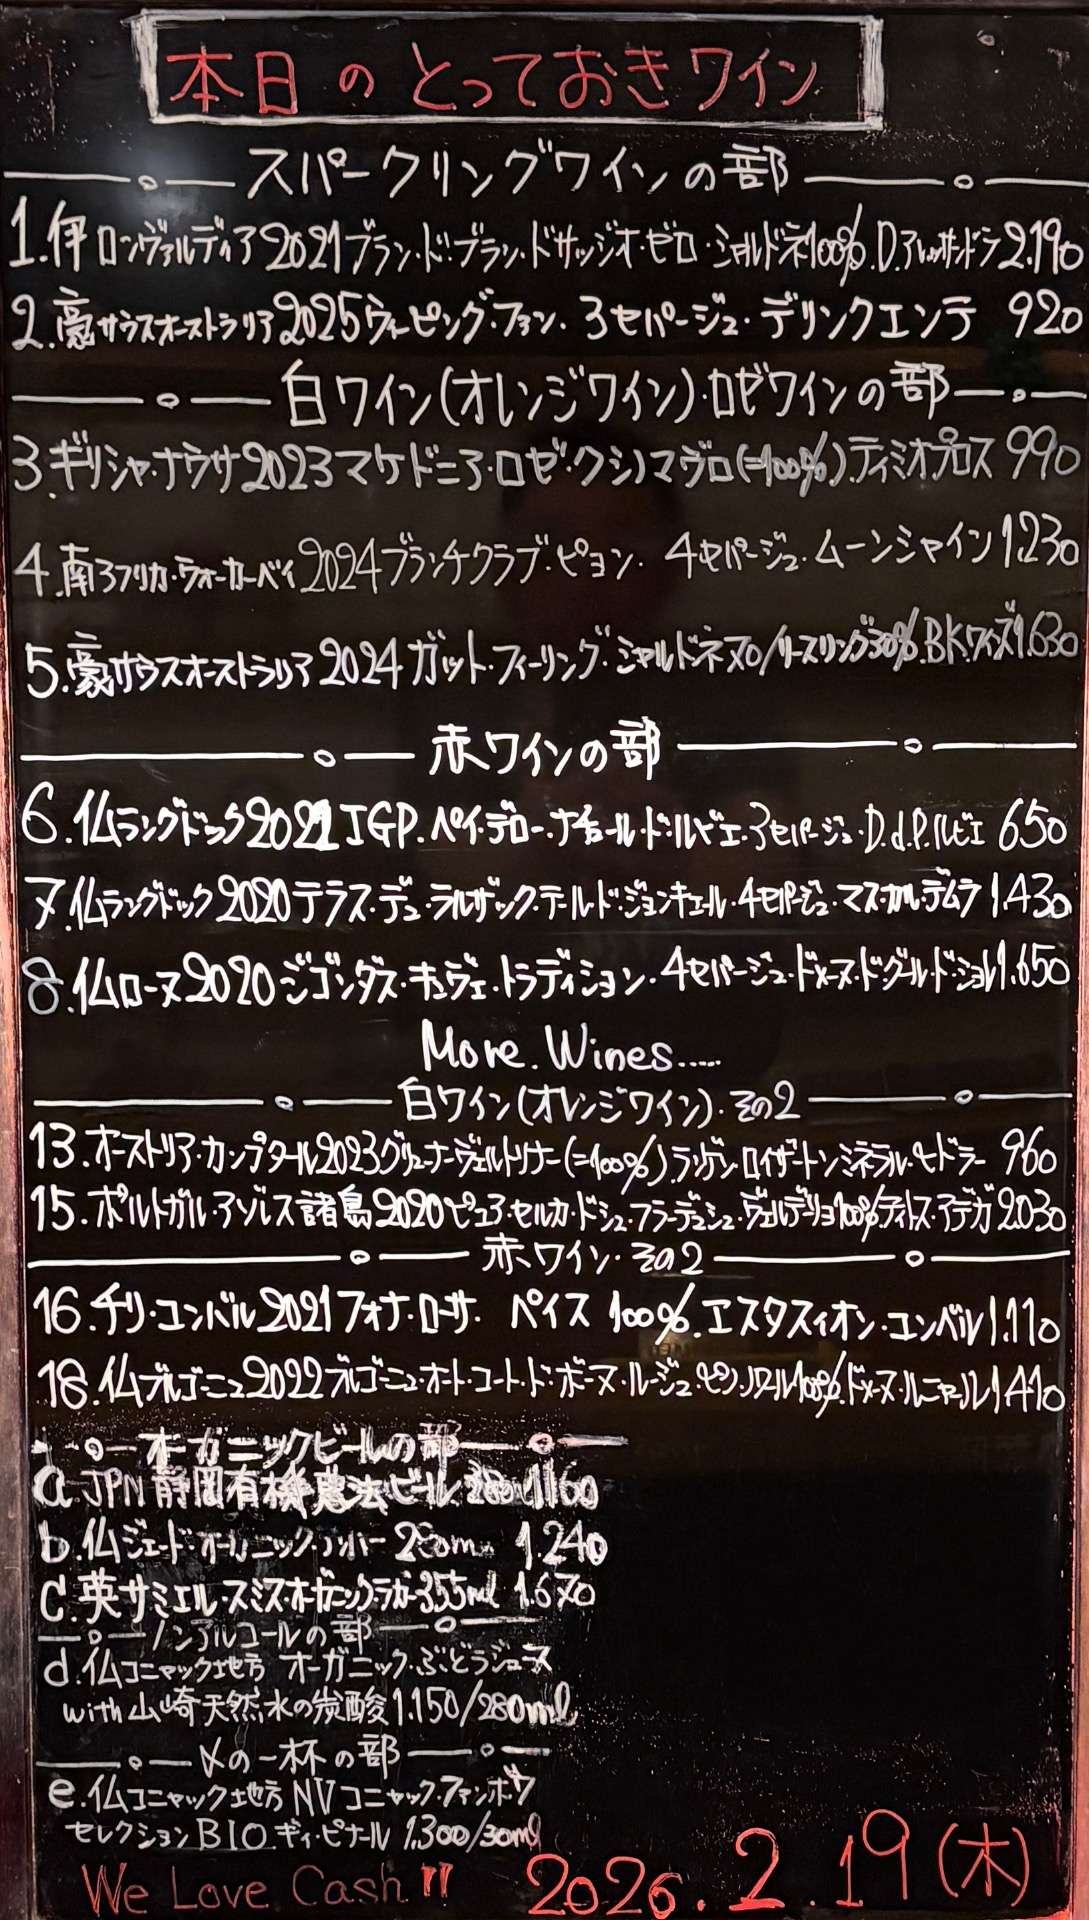 本日のとっておきワイン
スパークリングワインの部
1.伊ロンヴァルディア2021ブラン・ド・ブラン・ドサッジオ・ゼロ・シャルドネ100%.D.アレッサンドラ2.190
2.豪サウスオーストラリア2025ウィーピング・ファン.3セパージュ・デリンクエンテ 920
白ワイン(オレンジワイン)・ロゼワインの部
3.ギリシャ・ナウサ2023マケドニア・ロゼ・クシノマヴロ(=100%).ティミオプロス 990
4.南アフリカ・ウォーカーベイ2024ブランチクラブ・ピョン.4セパージュ.ムーンシャイン1.230
5.豪サウスオーストラリア2024ガット・フィーリング・シャルドネ70/リースリング30%.BKワインズ1.630
赤ワインの部
6.仏ラングドック2021IGP.ペイ・デロー・ナチュール・ド・ルビエ・3セパージュ・D.d.P.ルビエ 650
7.仏ラングドック2020テラス・デュ・ラルザック・テール・ド・ジョンキエール・4セパージュ・マス・カル・デムラ1.430
8.仏ローヌ2020ジゴンダス・キュヴェ・トラディション・4セパージュ・ドメーヌ・ド・グール・ド・ショル1.650
More.Wines.....
白ワイン(オレンジワイン)・その2
13.オーストリア・カンプタール2023グリューナー・ヴェルトリナー(=100%)ランゲンロイザー・トン・ミネラル・モドラー 960
15.ポルトガル・アゾレス諸島2020ピュア・セルカ・ド・シュ・フラーデシュ・ヴェルデーリョ100%ティトス・アデガ2.030
赤ワイン・その2
16.チリ・コンバル2021フォナ・ローサ.ペイス 100%.エスタスィオン・コンバル1.110
18.仏ブルゴーニュ2022ブルゴーニュ・オート・コート・ド・ボーヌ・ルージュ・ピノ・ノワール100%.ドメーヌ・ルニャール1.410
オーガニックビールの部
a.JPN静岡有機農法ビール 1.160
b.仏ジェード・オーガニック・アンバー 280ml 1.240
c.英サミエル・スミス・オーガニック・ラガー355ml 1.670
ノンアルコールの部
d.仏コニャック地方 オーガニック・ぶどうジュース
with山崎天然水の炭酸1.150/280ml
〆の一杯の部
e.仏コニャック地方NVコニャック・ファンボワ
セレクションBIO.ギィ・ピナール 1.300/30ml
We Love Cash!! 2026.2.19(木)